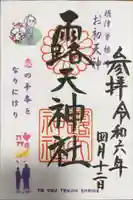 参拝
令和六年
四月十二日
摂津曽根崎
お初天神
露天神社
恋の手本と
なりにけり
TSUYU TENJIN SHRINE